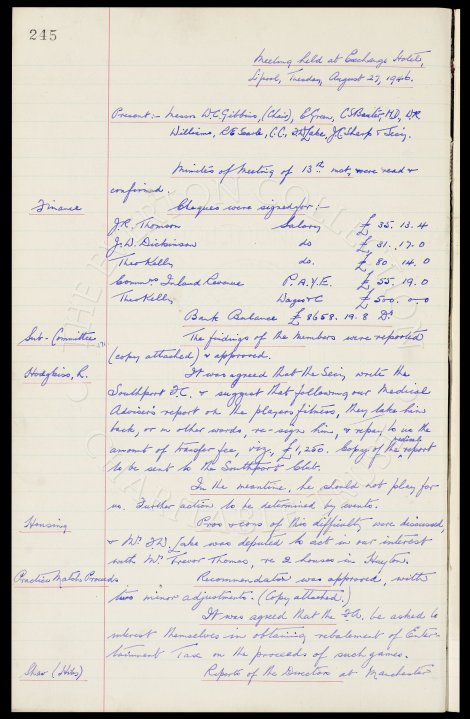 245
Meeting held at Exchange Hotel,
L'pool, Tuesday, August 27, 1946.
Present:- Messrs W.C. Gibbins, (Chair), E Green, C.S. Baxter, M.D., W.R.
Williams, R.E. Searle, C.C., F.W. Lake, J.C. Sharp & Secy.
Minutes of Meeting of 13th inst, were read &
confirmed.
Finance Cheques were signed for:-
J.R. Thomson Salary £ 35. 13. 4
J.W. Dickinson do £ 31. 17. 0
Theo Kelly do. £ 80. 14. 0
Commrs Inland Revenue P.A.Y.E. £ 55. 19. 0
Theo Kelly Wages &c £ 500. 0. 0
Bank Balance £ 8658. 19. 8 Dr
Sub-Committee The findings of the members were reported
(copy attached) & approved.
It was agreed that the Secy write the
Southport F.C. & suggest that following our Medical
Adviser's report on the players fitness, they take him
back, or in other words, re-sign him, & repay to us the
amount of transfer fee, viz, £1,250. Copy of the medical report
to be sent to the Southport Club.
In the meantime, he should not play for
us. Further action to be determined by events.
Housing Pros & cons of this difficulty were discussed,
& Mr. F.W. Lake was deputed to act in our interest
with Mr. Trevor Thomas, re 2 houses in Huyton.
Practice Match Proceeds Recommendation was approved, with
two minor adjustments. (Copy attached.)
It was agreed that the F.A. be asked to
interest themselves in obtaining rebatement of Enter-
tainment Tax on the proceeds of such games.
Shaw (Hibs) Reports of the Directors at Manchester
THE EVERTON COLLECTION
CHARITABLE TRUST